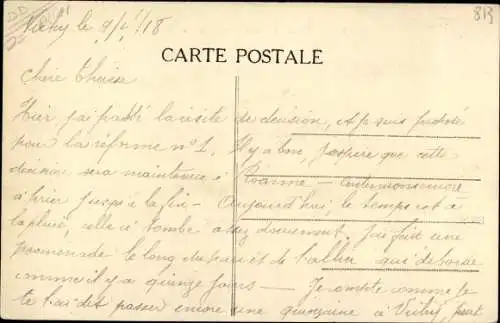 Vichy le 9/4/18
813
CARTE POSTALE
Chère Thérèse
Hier j'ai passé la visite de décision, et je suis proposé
pour la réforme n° 1. Il y a bon, j'espère que cette
décision sera maintenue à Roanne — Continuons encore
à prier jusqu'à la fin — Aujourd'hui, le temps est à
la pluie, elle a tombé assez doucement. J'ai fait une
promenade le long du parc et de l'allier qui déborde
comme il y a quinze jours — Je compte comme je
te l'ai dit passer encore une quinzaine à Vichy, peut